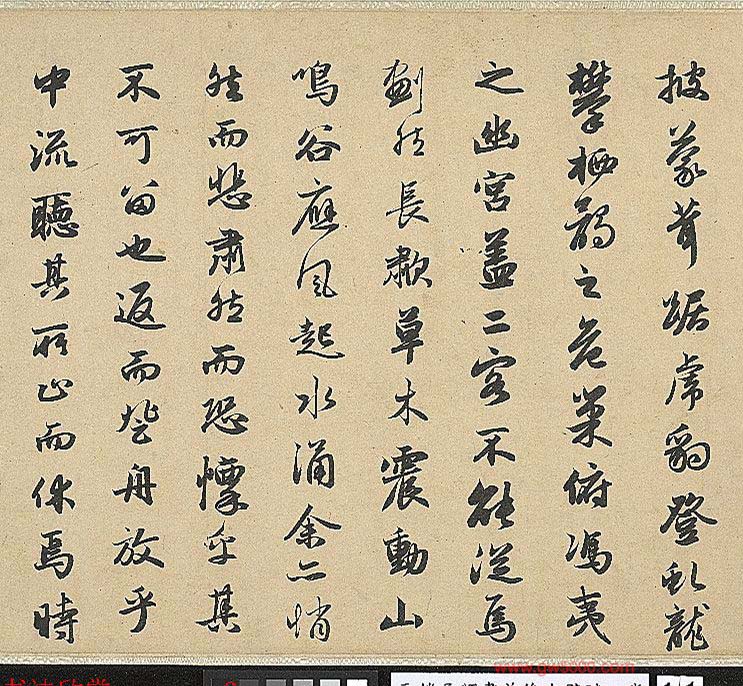 披蒙茸踞虎豹登虬龍
攀栖鶻之危巢俯馮夷
之幽宮蓋二客不能從焉
劃然長歗草木震動山
鳴谷應風起水涌余亦悄
然而悲肅然而恐懍乎其
不可留也返而登舟放乎
中流聽其所止而休焉時